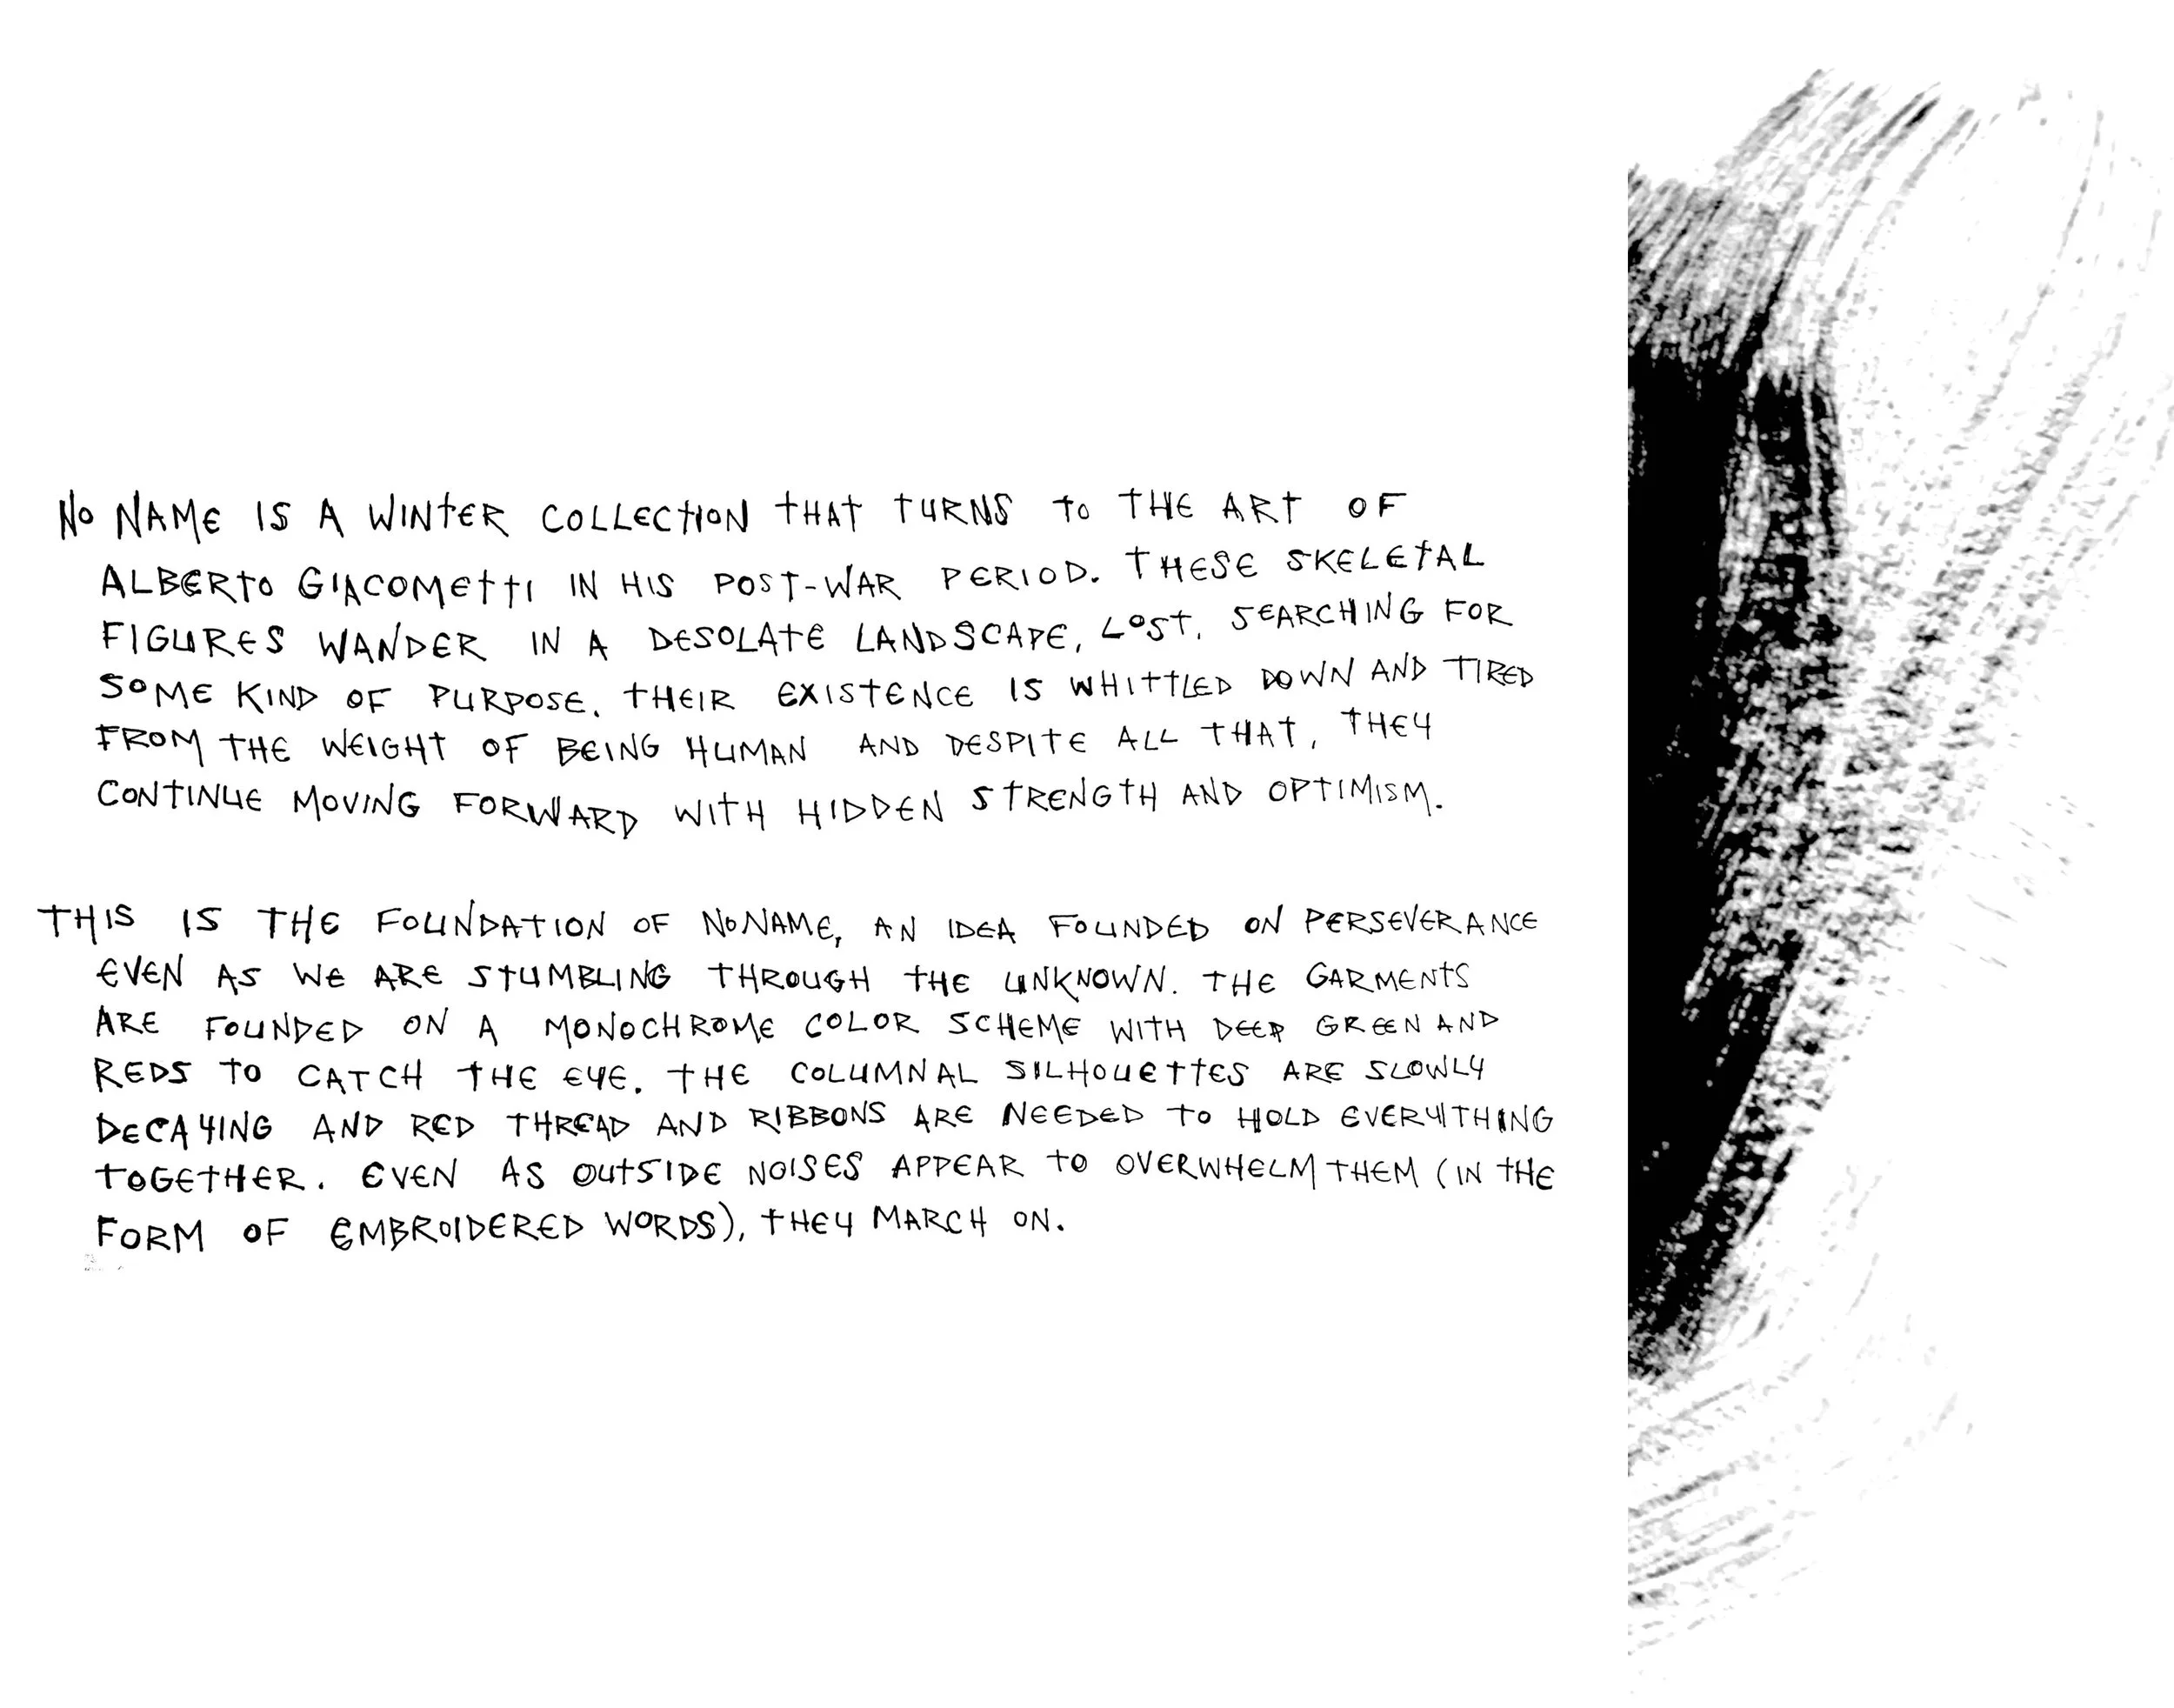 NO NAME IS A WINTER COLLECTION THAT TURNS TO THE ART OF
ALBERTO GIACOMETTI IN HIS POST-WAR PERIOD. THESE SKELETAL
FIGURES WANDER IN A DESOLATE LANDSCAPE, LOST. SEARCHING FOR
SOME KIND OF PURPOSE. THEIR EXISTENCE IS WHITTLED DOWN AND TIRED
FROM THE WEIGHT OF BEING HUMAN AND DESPITE ALL THAT, THEY
CONTINUE MOVING FORWARD WITH HIDDEN STRENGTH AND OPTIMISM.
THIS IS THE FOUNDATION OF NONAME, AN IDEA FOUNDED ON PERSEVERANCE
EVEN AS WE ARE STUMBLING THROUGH THE UNKNOWN. THE GARMENTS
ARE FOUNDED ON A MONOCHROME COLOR SCHEME WITH DEEP GREEN AND
REDS TO CATCH THE EYE. THE COLUMNAL SILHOUETTES ARE SLOWLY
DECAYING AND RED THREAD AND RIBBONS ARE NEEDED TO HOLD EVERYTHING
TOGETHER. EVEN AS OUTSIDE NOISES APPEAR TO OVERWHELM THEM (IN THE
FORM OF EMBROIDERED WORDS), THEY MARCH ON.